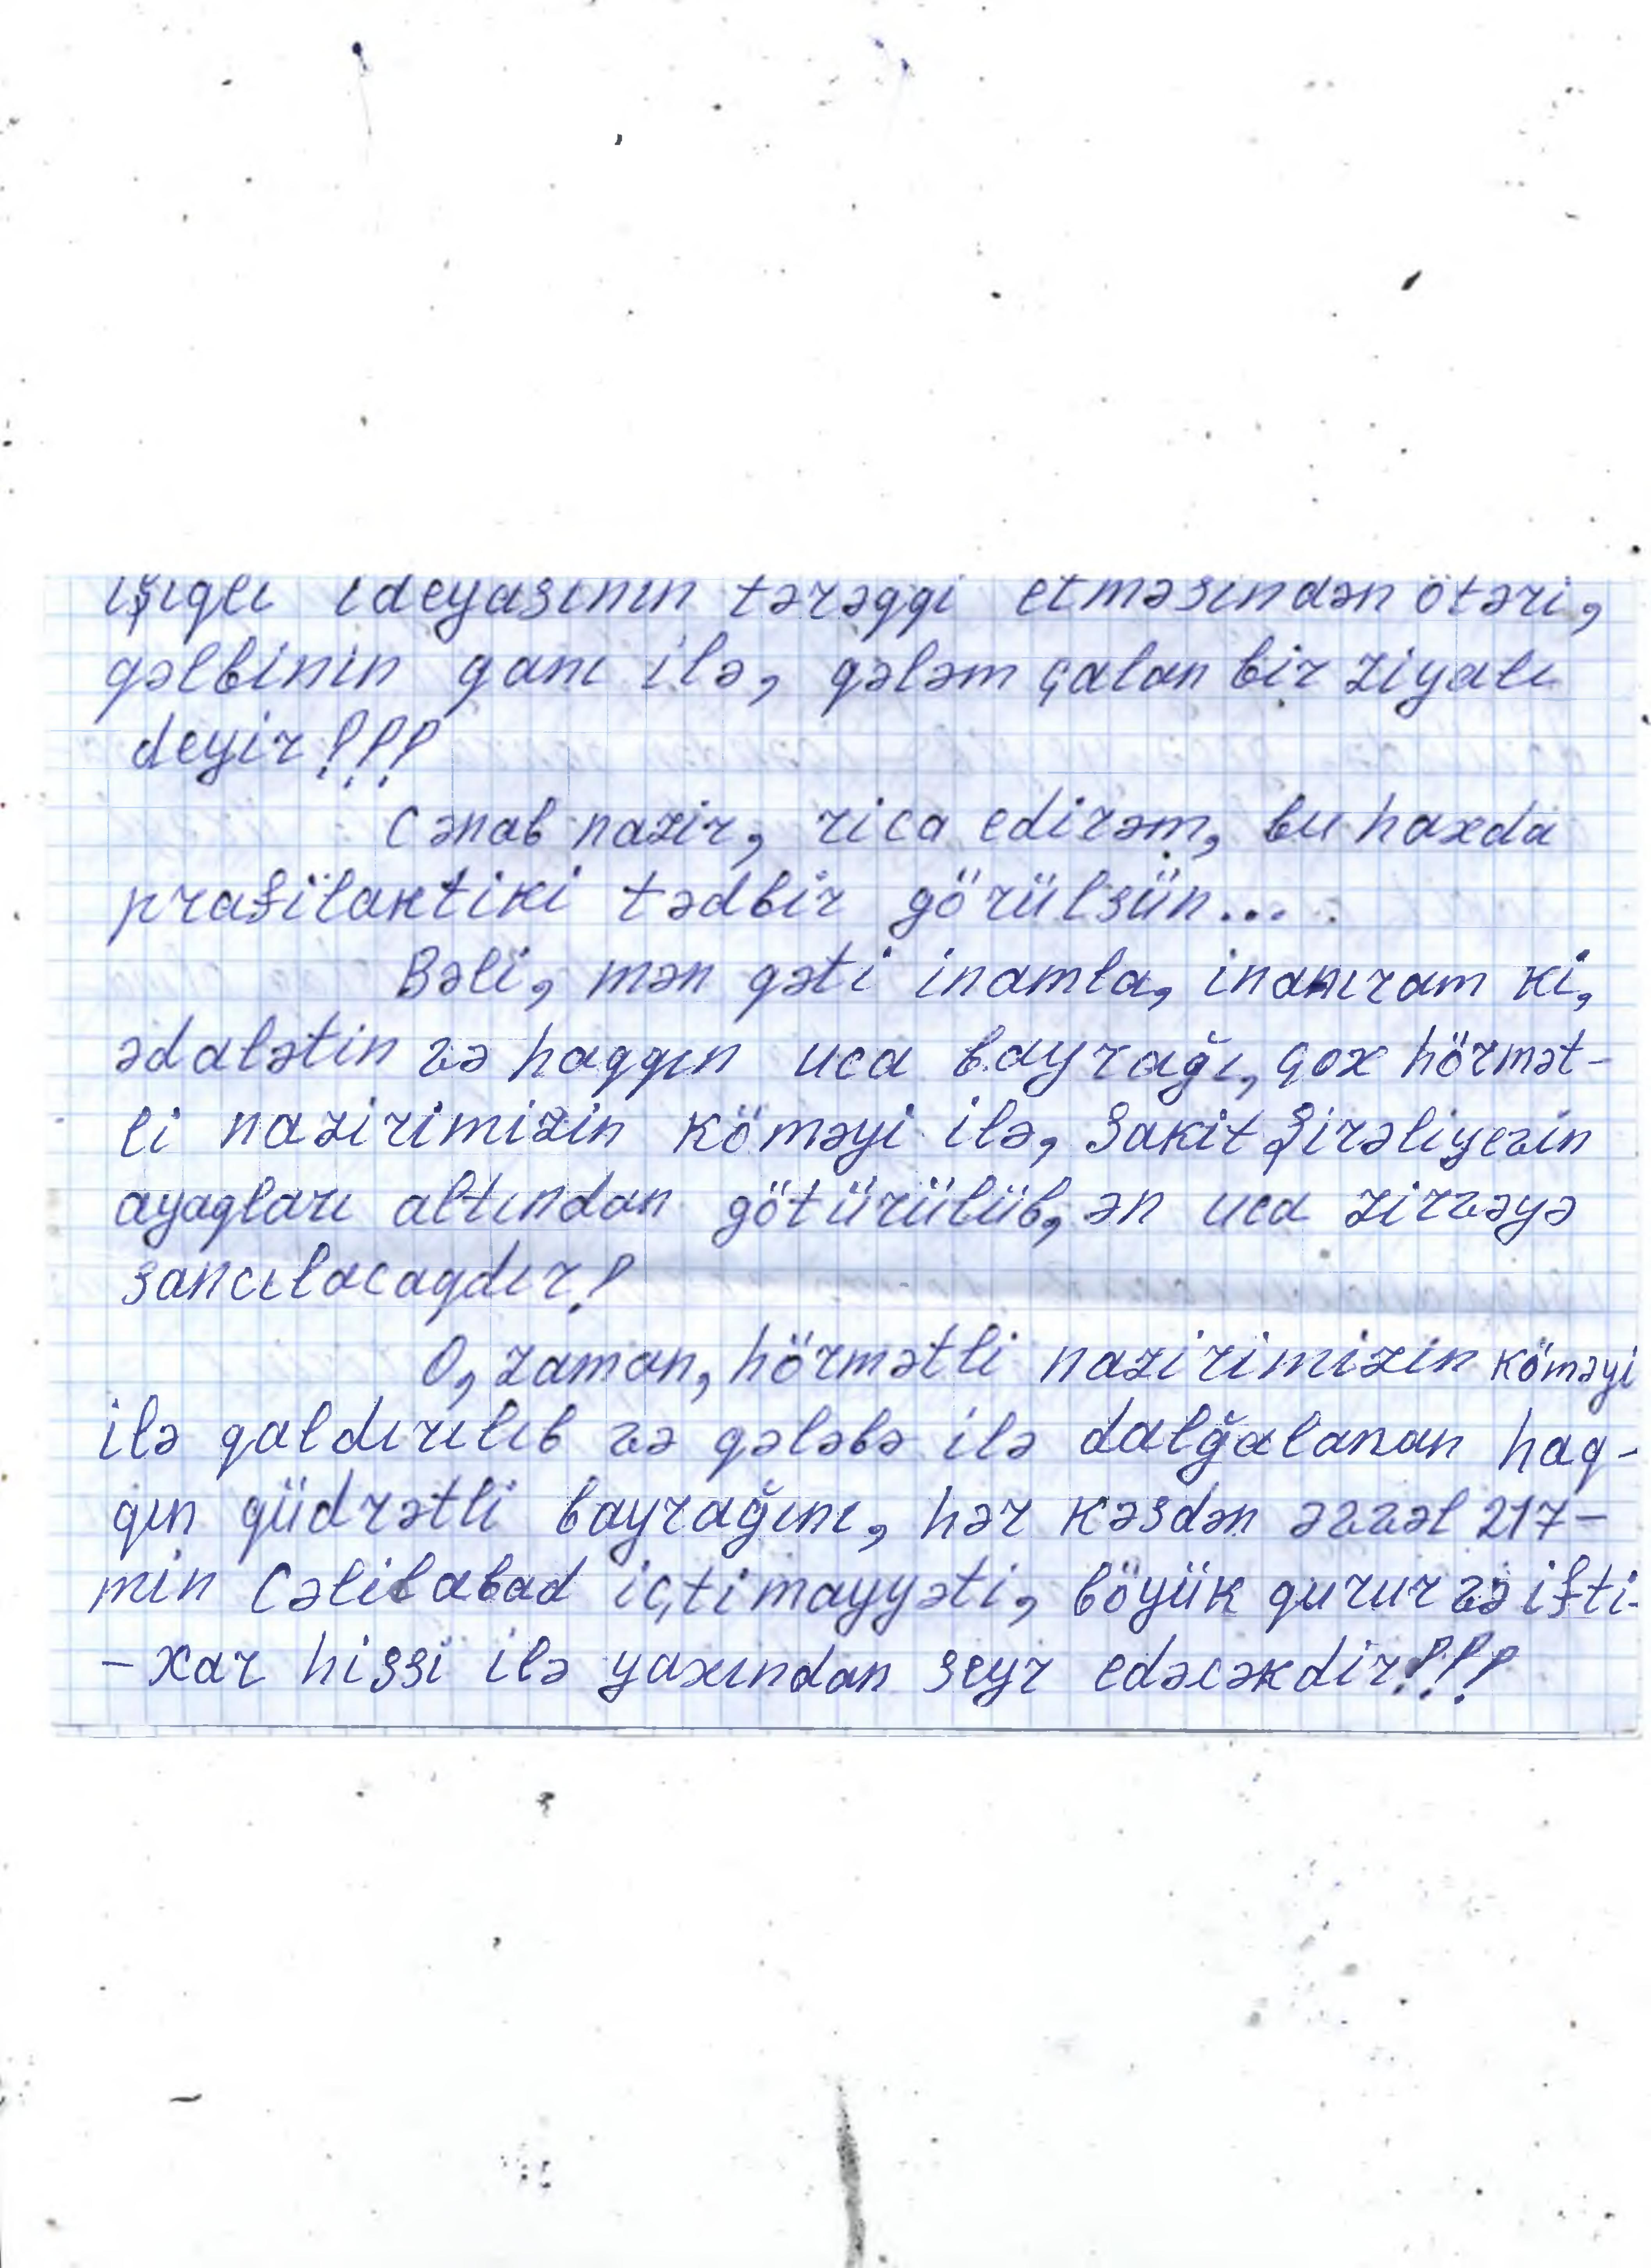 işıqlı ideyasının tərəqqi etməsindən ötəri,
qəlbinin qanı ilə, qələm çalan bir ziyalı
deyir!!!
Cənab nazir, rica edirəm, bu haxda
prafilaktiki tədbir görülsün...
Bəli, mən qəti inamla, inanıram ki,
ədalətin və haqqın uca bayrağı, çox hörmət-
li nazirimizin köməyi ilə, Sakit Şirəliyevin
ayaqları altından götürülüb, ən uca zirvəyə
sancılacaqdır!
O, zaman, hörmətli nazirimizin köməyi
ilə qaldırılıb və qələbə ilə dalğalanan haq-
qın qüdrətli bayrağını, hər kəsdən əvvəl 217-
min Cəlilabad içtimayyəti, böyük qurur və ifti-
-xar hissi ilə yaxından seyr edəcəkdir!!!